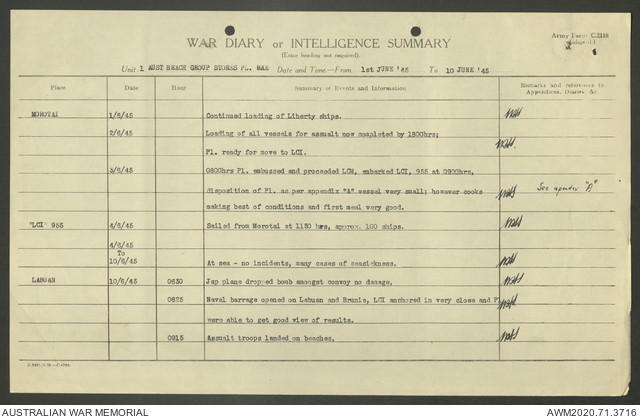 Army Form C.2118
WAR DIARY or INTELLIGENCE SUMMARY
(Erase heading not required).
Unit. 1 AUST BEACH GROUP STORES PL. Date and Time.—From 1st JUNE '45 To 10 JUNE '45
Place Date Hour Summary of Events and Information Remarks and references to
Appendices, Diaries &c
MOROTAI 1/6/45 Continued loading of Liberty ships.
2/6/45 Loading of all vessels for assualt now completed by 1800hrs;
Pl. ready for move to LCI.
3/6/45 0800hrs Pl. embussed and proceeded LCM, embarked LCI, 955 at 0900hrs,
disposition of Pl. as per appendix "A" vessel very small; however cooks See apendix "A"
making best of conditions and first meal very good.
"LCI" 955 4/6/45 Sailed from Morotai at 1130 hrs, approx. 100 ships.
4/6/45
To
10/6/45 At sea - no incidents, many cases of seasickness.
LABUAN 10/6/45 0630 Jap plane dropped bomb amongst convoy no damage.
0825 Naval barrage opened on Labuan and Brunis, LCI anchored in very close and Pl
were able to get good view of results.
0915 Assualt troops landed on beaches.
AUSTRALIAN WAR MEMORIAL AWM2020.71.3716